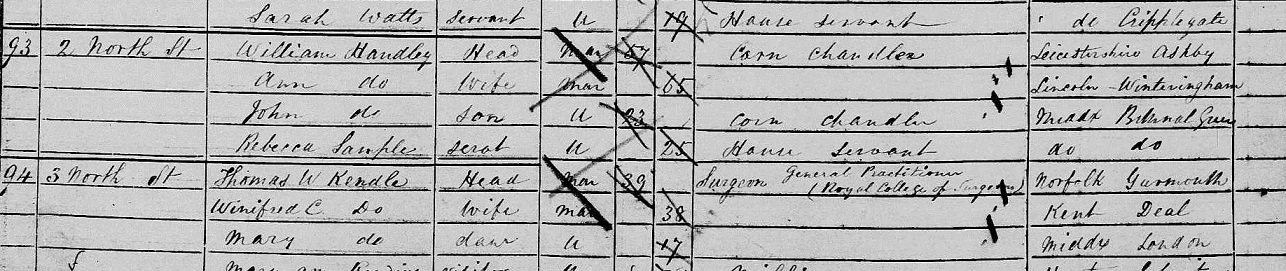 Sarah Watts servant U 19 House servant do Cripplegate
93 2 North St William Handley Head Mar 57 Corn Chandler Leicestershire Ashby
Ann do Wife Mar 65 Lincoln - Winteringham
John do Son U 23 Corn Chandler Middx Bethnal Green
Rebecca Sample servt U 25 House servant do do
94 3 North St Thomas W Kendle Head Mar 39 Surgeon General Practitioner (Royal College of Surgeons) Norfolk Yarmouth
Winifred C. Do Wife Mar 38 Kent Deal
Mary do daur U 17 Middx London